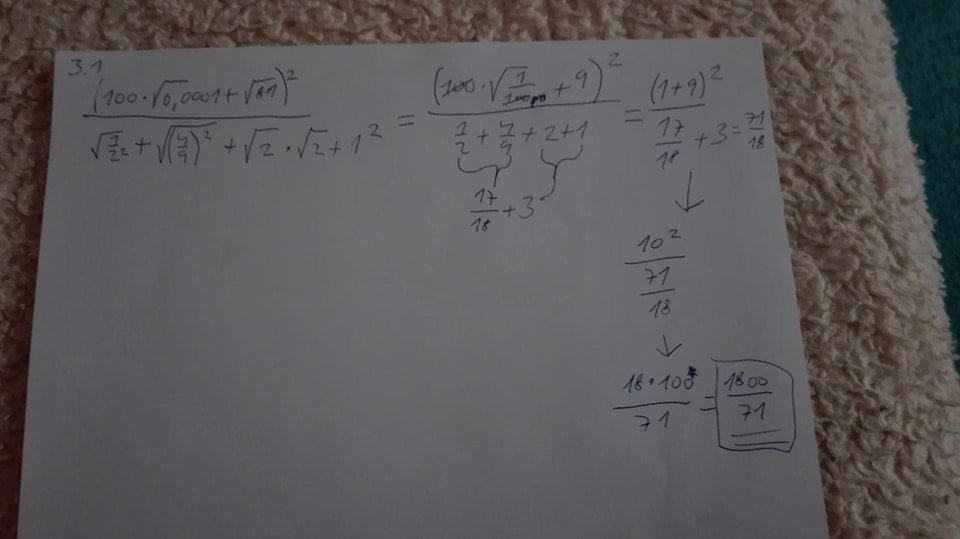 3.1
(100·√0,0001+√81)² / (√(1/2²)+√((4/9)²)+√2·√2+1²) = (100·√(1/10000)+9)² / (1/2+4/9+2+1) = (1+9)² / (17/18+3=71/18)
17/18+3
↓
10² / (71/18)
↓
18·100 / 71 = 1800/71